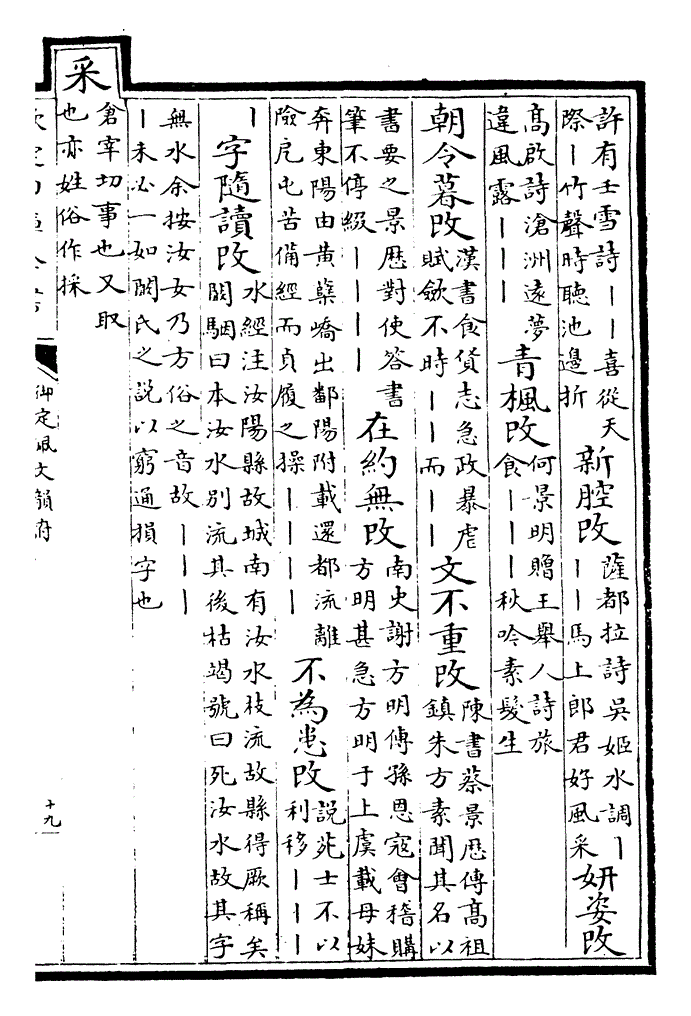 許有壬雪詩丨丨喜從天
際丨竹聲時聽池邊折
新腔改
薩都拉詩吳姬水調丨
丨丨馬上郎君好風采
妍姿改
高啟詩滄洲遠夢
違風露丨丨丨
青楓改
何景明贈王舉人詩旅
食丨丨丨秋吟素髮生
朝令暮改
漢書食貨志急政暴虐
賦斂不時丨丨而丨丨
文不重改
陳書蔡景歷傳高祖
鎮朱方素聞其名以
書要之景歷對使答書
筆不停綴丨丨丨丨
在約無改
南史謝方明傳孫恩寇會稽購
方明甚急方明于上虞載母妹
奔東陽由黄蘗嶠出鄱陽附載還都流離
險戹屯苦備經而貞履之操丨丨丨丨
不為患改
説苑士不以
利移丨丨丨
丨
字隨讀改
水經注汝陽縣故城南有汝水枝流故縣得厥稱矣
闞駰曰本汝水別流其後枯竭號曰死汝水故其字
無水余按汝女乃方俗之音故丨丨丨
丨未必一如闞氏之説以窮通損字也
采
倉宰切事也又取
也亦姓俗作採
御定佩文韻府
十九